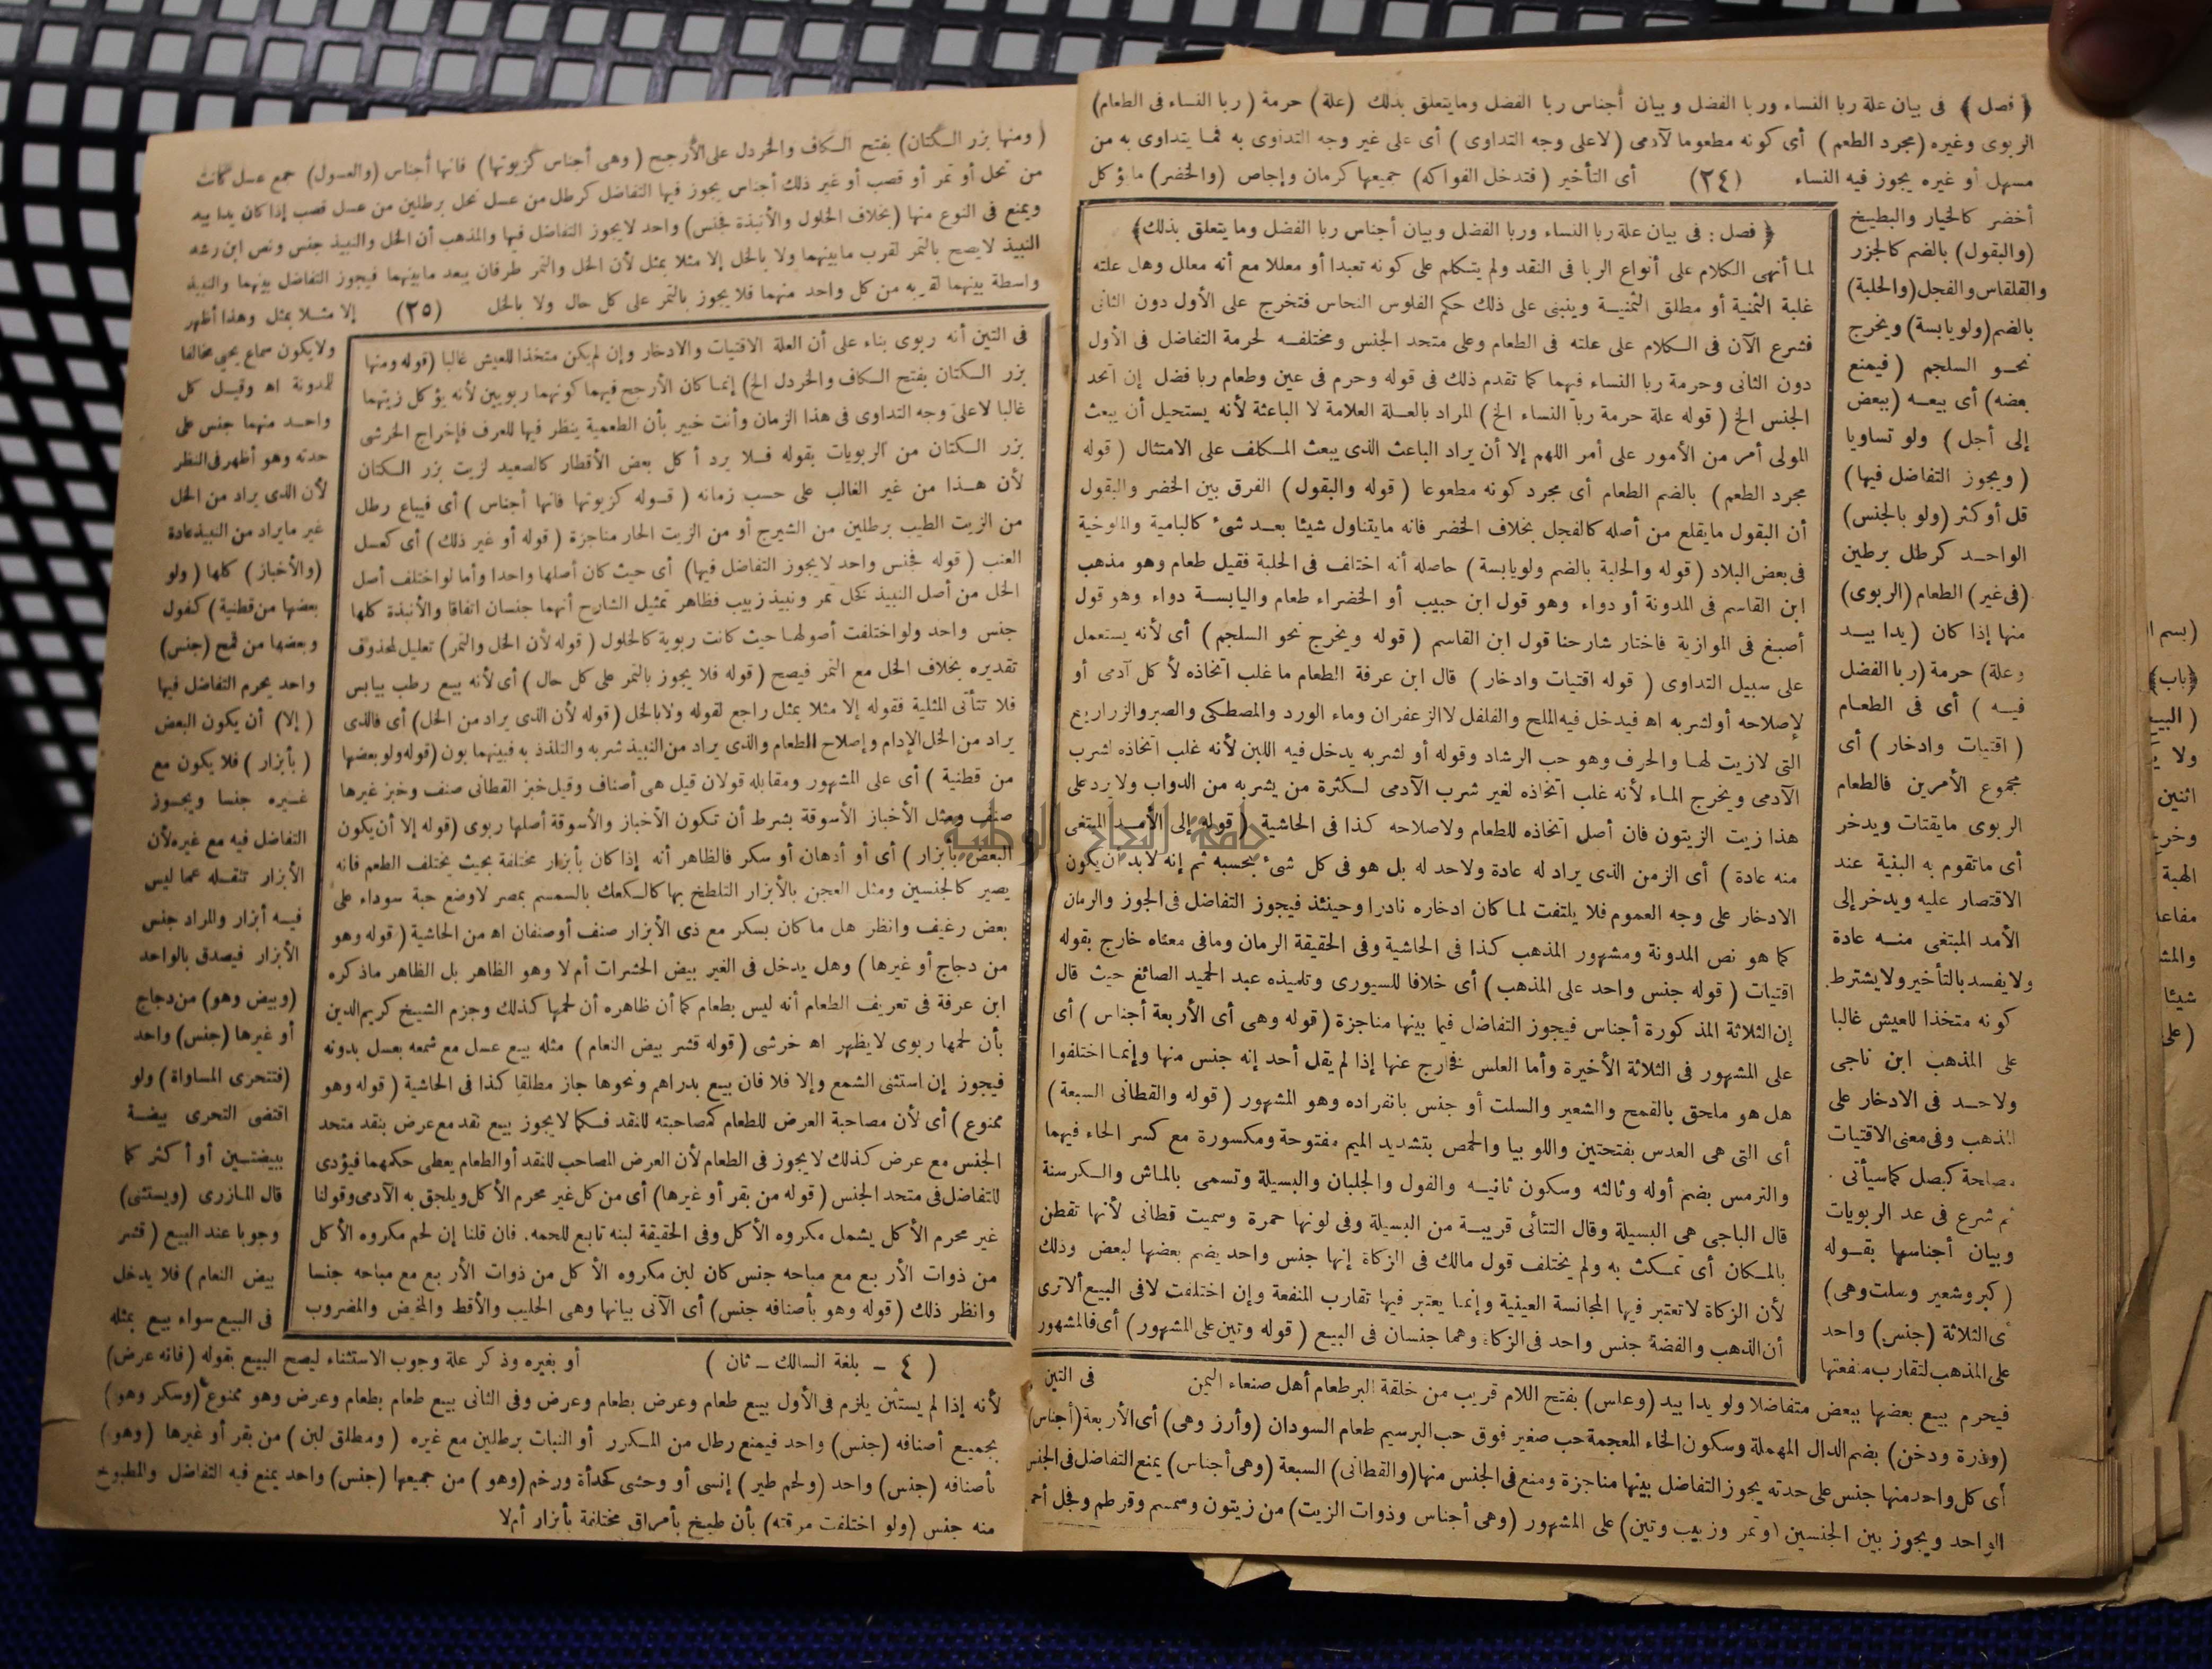 ﴿ فصل ﴾ فى بيان علة ربا النساء وربا الفضل وبيان أجناس ربا الفضل ومايتعلق بذلك (علة) حرمة (ربا النساء فى الطعام)
الربوى وغيره (مجرد الطعم) أى كونه مطعوما لآدمى (لاعلى وجه التداوى) أى على غير وجه التداوى به فما يتداوى به من
مسهل أو غيره يجوز فيه النساء (٢٤) أى التأخير (فتدخل الفواكه) جميعها كرمان وإجاص (والخضر) مايؤكل
أخضر كالخيار والبطيخ
(والبقول) بالضم كالجزر
والقلقاس والفجل (والحلبة)
بالضم (ولويابسة) ويخرج
نحو السلجم (فيمنع
بعضه) أى بيعه (ببعض
إلى أجل) ولو تساويا
(ويجوز التفاضل فيها)
قل أوكثر (ولو بالجنس)
الواحد كرطل برطين
(فى غير) الطعام (الربوى)
منها إذا كان (يدا بيد
وعلة) حرمة (ربا الفضل
فيه) أى فى الطعام
(اقتيات وادخار) أى
مجموع الأمرين فالطعام
الربوى مايقتات ويدخر
أى ماتقوم به البنية عند
الاقتصار عليه ويدخر إلى
الأمد المبتغى منه عادة
ولايفسد بالتأخير ولايشترط
كونه متخذا للعيش غالبا
على المذهب ابن ناجى
ولاحد فى الادخار على
المذهب وفى معنى الاقتيات
مصلحة كبصل كماسيأتى .
ثم شرع فى عد الربويات
وبيان أجناسها بقوله
(كبر وشعير وسلت وهى)
أى الثلاثة (جنس) واحد
على المذهب لتقارب منفعتها
﴿ فصل : فى بيان علة ربا النساء وربا الفضل وبيان أجناس ربا الفضل وما يتعلق بذلك﴾
لما أنهى الكلام على أنواع الربا فى النقد ولم يتكلم على كونه تعبدا أو معللا مع أنه معلل وهل علته
غلبة الثمنية أو مطلق الثمنية وينبنى على ذلك حكم الفلوس النحاس فتخرج على الأول دون الثانى
فشرع الآن فى الكلام على علته فى الطعام وعلى متحد الجنس ومختلفه لحرمة التفاضل فى الأول
دون الثانى وحرمة ربا النساء فيهما كما تقدم ذلك فى قوله وحرم فى عين وطعام ربا فضل إن اتحد
الجنس الخ (قوله علة حرمة ربا النساء الخ) المراد بالعلة العلامة لا الباعثة لأنه يستحيل أن يبعث
المولى أمر من الأمور على أمر اللهم إلا أن يراد الباعث الذى يبعث المكلف على الامتثال (قوله
مجرد الطعم) بالضم الطعام أى مجرد كونه مطعوعا (قوله والبقول) الفرق بين الخضر والبقول
أن البقول مايقلع من أصله كالفجل بخلاف الخضر فانه مايتناول شيئا بعد شئ كالبامية والملوخية
فى بعض البلاد (قوله والحلبة بالضم ولويابسة) حاصله أنه اختلف فى الحلبة فقيل طعام وهو مذهب
ابن القاسم فى المدونة أو دواء وهو قول ابن حبيب أو الخضراء طعام واليابسة دواء وهو قول
أصبغ فى الموازية فاختار شارحنا قول ابن القاسم (قوله ويخرج نحو السلجم) أى لأنه يستعمل
على سبيل التداوى (قوله اقتيات وادخار) قال ابن عرفة الطعام ما غلب اتخاذه لأكل آدمى أو
لإصلاحه أولشربه اه فيدخل فيه الملح والفلفل لاالزعفران وماء الورد والمصطكى والصبر والزراريع
التى لازيت لها والحرف وهو حب الرشاد وقوله أو لشربه يدخل فيه اللبن لأنه غلب اتخاذه لشرب
الآدمى ويخرج الماء لأنه غلب اتخاذه لغير شرب الآدمى لكثرة من يشربه من الدواب ولايرد على
هذا زيت الزيتون فان أصل اتخاذه للطعام ولاصلاحه كذا فى الحاشية (قوله إلى الأمد المبتغى
منه عادة) أى الزمن الذى يراد له عادة ولاحد له بل هو فى كل شئ بحسبه ثم إنه لابد أن يكون
الادخار على وجه العموم فلا يلتفت لماكان ادخاره نادرا وحينئذ فيجوز التفاضل فى الجوز والرمان
كما هو نص المدونة ومشهور المذهب كذا فى الحاشية وفى الحقيقة الرمان ومافى معناه خارج بقوله
اقتيات (قوله جنس واحد على المذهب) أى خلافا للسيورى وتلميذه عبد الحميد الصائغ حيث قال
إن الثلاثة المذكورة أجناس فيجوز التفاضل فيما بينها مناجزة (قوله وهى أى الأربعة أجناس) أى
على المشهور فى الثلاثة الأخيرة وأما العلس فخارج عنها إذا لم يقل أحد إنه جنس منها وإنما اختلفوا
هل هو ملحق بالقمح والشعير والسلت أو جنس بانفراده وهو المشهور (قوله والقطانى السبعة)
أى التى هى العدس بفتحتين واللوبيا والحمص بتشديد الميم مفتوحة ومكسورة مع كسر الحاء فيهما
والترمس بضم أوله وثالثه وسكون ثانيه والفول والجلبان والبسيلة وتسمى بالماش والكرسنة
قال الباجى هى البسيلة وقال التتائى قريبة من البسيلة وفى لونها حمرة وسميت قطانى لأنها تقطن
بالمكان أى تمكث به ولم يختلف قول مالك فى الزكاة إنها جنس واحد يضم بعضها لبعض وذلك
لأن الزكاة لاتعتبر فيها المجانسة العينية وإنما يعتبر فيها تقارب المنفعة وإن اختلفت لافى البيع ألاترى
أن الذهب والفضة جنس واحد فى الزكاة وهما جنسان فى البيع (قوله وتين على المشهور) أى فالمشهور
فى التين
فيحرم بيع بعضها ببعض متفاضلا ولو يدا بيد (وعلس) بفتح اللام قريب من خلقة البر طعام أهل صنعاء اليمن
(وذرة ودخن) بضم الدال المهملة وسكون الخاء المعجمة حب صغير فوق حب البرسيم طعام السودان (وأرز وهى) أى الأربعة (أجناس)
أى كل واحد منها جنس على حدته يجوز التفاضل بينها مناجزة ومنع فى الجنس منها (والقطانى) السبعة (وهى أجناس) يمنع التفاضل فى الجنس
الواحد ويجوز بين الجنسين (وتمر وزبيب وتين) على المشهور (وهى أجناس وذوات الزيت) من زيتون وسمسم وقرطم وفجل أحمر
(ومنها بزر الكتان) بفتح الكاف والخردل على الأرجح (وهى أجناس كزيوتها) فانها أجناس (والعسول) جمع عسل كانت
من نحل أو تمر أو قصب أو غير ذلك أجناس يجوز فيها التفاضل كرطل من عسل نحل برطلين من عسل قصب إذا كان يدا بيد
ويمنع فى النوع منها (بخلاف الخلول والأنبذة فجنس) واحد لايجوز التفاضل فيها والمذهب أن الخل والنبيذ جنس ونص ابن رشد
النبيذ لايصح بالتمر لقرب مابينهما ولا بالخل إلا مثلا بمثل لأن الخل والتمر طرفان يبعد مابينهما فيجوز التفاضل بينهما والنبيذ
واسطة بينهما لقربه من كل واحد منهما فلا يجوز بالتمر على كل حال ولا بالخل (٢٥) إلا مثلا بمثل وهذا أظهر
ولايكون سماع يحيى مخالفا
للمدونة اه وقيل كل
واحد منهما جنس على
حدته وهو أظهر فى النظر
لأن الذى يراد من الخل
غير مايراد من النبيذ عادة
(والأخباز) كلها (ولو
بعضها من قطنية) كفول
وبعضها من قمح (جنس)
واحد يحرم التفاضل فيها
(إلا) أن يكون البعض
(بأبزار) فلا يكون مع
غيره جنسا ويجوز
التفاضل فيه مع غيره لأن
الأبزار تنقله عما ليس
فيه أبزار والمراد جنس
الأبزار فيصدق بالواحد
(وبيض وهو) من دجاج
أو غيرها (جنس) واحد
(فتتحرى المساواة) ولو
اقتضى التحرى بيضة
ببيضتين أو أكثر كما
قال المازرى (ويستثنى)
وجوبا عند البيع (قشر
بيض النعام) فلا يدخل
فى البيع سواء بيع بمثله
فى التين أنه ربوى بناء على أن العلة الاقتيات والادخار وإن لم يكن متخذا للعيش غالبا (قوله ومنها
بزر الكتان بفتح الكاف والخردل الخ) إنما كان الأرجح فيهما كونهما ربويين لأنه يؤكل زيتهما
غالبا لاعلى وجه التداوى فى هذا الزمان وأنت خبير بأن الطعمية ينظر فيها للعرف فإخراج الخرشى
بزر الكتان من الربويات بقوله فلا يرد أكل بعض الأقطار كالصعيد لزيت بزر الكتان
لأن هذا من غير الغالب على حسب زمانه (قوله كزيوتها فانها أجناس) أى فيباع رطل
من الزيت الطيب برطلين من الشيرج أو من الزيت الحار مناجزة (قوله أو غير ذلك) أى كعسل
العنب (قوله فجنس واحد لايجوز التفاضل فيها) أى حيث كان أصلها واحدا وأما لواختلف أصل
الخل من أصل النبيذ كخل تمر ونبيذ زبيب فظاهر تمثيل الشارح أنهما جنسان اتفاقا والأنبذة كلها
جنس واحد ولواختلفت أصولها حيث كانت ربوية كالخلول (قوله لأن الخل والتمر) تعليل لمحذوف
تقديره بخلاف الخل مع التمر فيصح (قوله فلا يجوز بالتمر على كل حال) أى لأنه بيع رطب بيابس
فلا تتأتى المثلية فقوله إلا مثلا بمثل راجع لقوله ولابالخل (قوله لأن الذى يراد من الخل) أى فالذى
يراد من الخل الإدام وإصلاح الطعام والذى يراد من النبيذ شربه والتلذذ به فبينهما بون (قوله ولو بعضها
من قطنية) أى على المشهور ومقابله قولان قيل هى أصناف وقيل خبز القطانى صنف وخبز غيرها
صنف ومثل الأخباز الأسوقة بشرط أن تكون الأخباز والأسوقة أصلها ربوى (قوله إلا أن يكون
البعض بأبزار) أى أو أدهان أو سكر فالظاهر أنه إذا كان بأبزار مختلفة بحيث يختلف الطعم فانه
يصير كالجنسين ومثل العجن بالأبزار التلطخ بها كالكعك بالسمسم بمصر لاوضع حبة سوداء على
بعض رغيف وانظر هل ما كان بسكر مع ذى الأبزار صنف أوصنفان اه من الحاشية (قوله وهو
من دجاج أو غيرها) وهل يدخل فى الغير بيض الحشرات أم لا وهو الظاهر بل الظاهر ماذكره
ابن عرفة فى تعريف الطعام أنه ليس بطعام كما أن ظاهره أن لحمها كذلك وجزم الشيخ كريم الدين
بأن لحمها ربوى لايظهر اه خرشى (قوله قشر بيض النعام) مثله بيع عسل مع شمعه بعسل بدونه
فيجوز إن استثنى الشمع وإلا فلا فان بيع بدراهم ونحوها جاز مطلقا كذا فى الحاشية (قوله وهو
ممنوع) أى لأن مصاحبة العرض للطعام كمصاحبته للنقد فكما لايجوز بيع نقد مع عرض بنقد متحد
الجنس مع عرض كذلك لايجوز فى الطعام لأن العرض المصاحب للنقد أوالطعام يعطى حكمهما فيؤدى
للتفاضل فى متحد الجنس (قوله من بقر أو غيرها) أى من كل غير محرم الأكل ويلحق به الآدمى وقولنا
غير محرم الأكل يشمل مكروه الأكل وفى الحقيقة لبنه تابع للحمه. فان قلنا إن لحم مكروه الأكل
من ذوات الأربع مع مباحه جنس كان لبن مكروه الأكل من ذوات الأربع مع مباحه جنسا
وانظر ذلك (قوله وهو بأصنافه جنس) أى الآتى بيانها وهى الحليب والأقط والمخيض والمضروب
(٤ – بلغة السالك – ثان) أو بغيره وذكر علة وجوب الاستثناء ليصح البيع بقوله (فانه عرض)
لأنه إذا لم يستثن يلزم فى الأول بيع طعام وعرض بطعام وعرض وفى الثانى بيع طعام بطعام وعرض وهو ممنوع (وسكر وهو)
بجميع أصنافه (جنس) واحد فيمنع رطل من المكرر أو النبات برطلين مع غيره (ومطلق لبن) من بقر أو غيرها (وهو)
بأصنافه (جنس) واحد (ولحم طير) إنسى أو وحشى كحدأة ورخم (وهو) من جميعها (جنس) واحد يمنع فيه التفاضل والمطبوخ
منه جنس (ولو اختلفت مرقته) بأن طبخ بأمراق مختلفة بأبزار أم لا
جامعة النجاح الوطنية
(بسم ا
﴿باب﴾
(البيع
ولا
اثنين
وخرج
الهبة
مفاعا
والمش
شيئا
(على